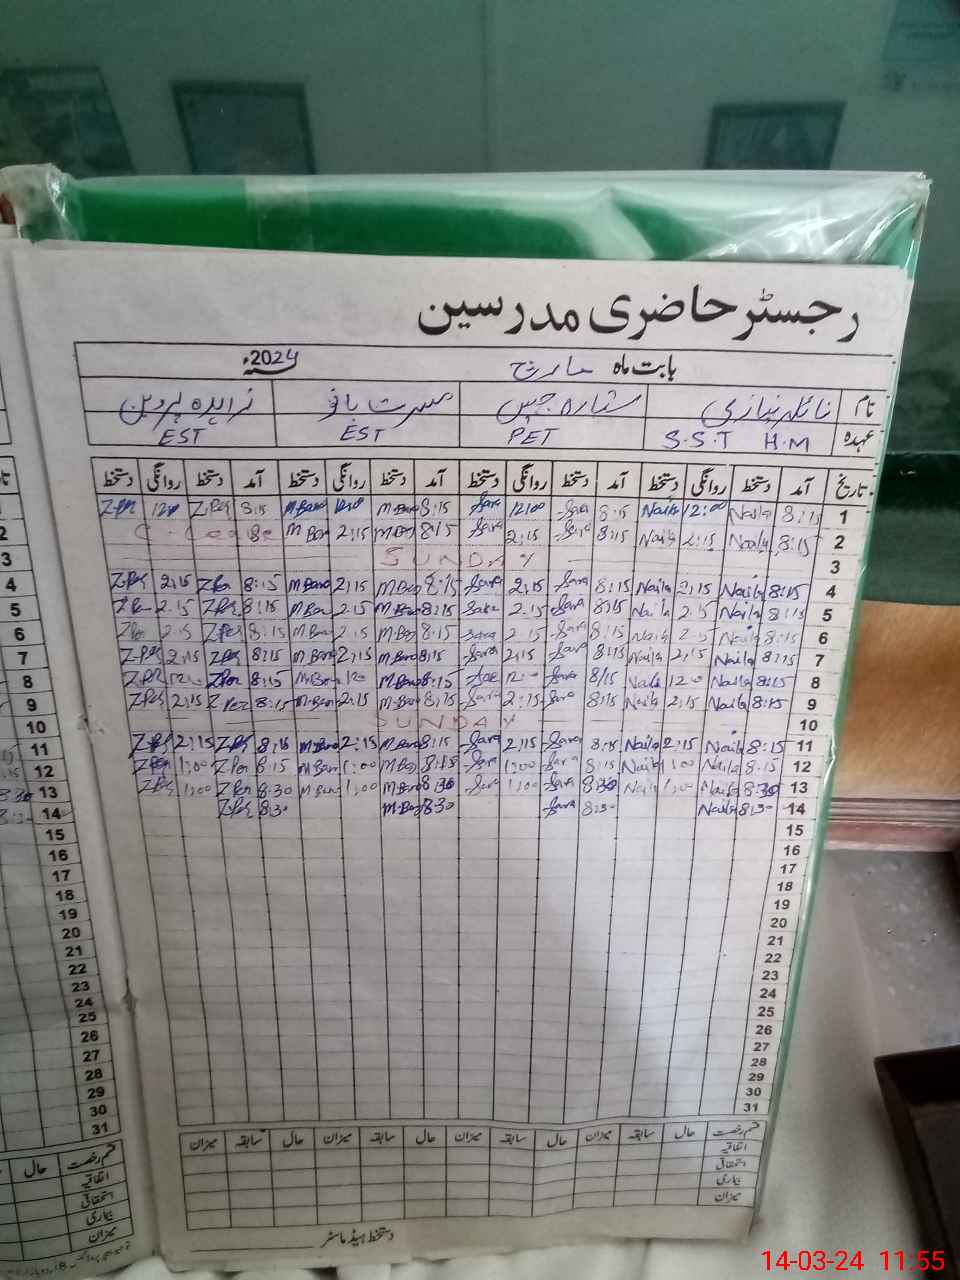 رجسٹر حاضری مدرسین
بابت ماہ مارچ 2024ء
نام نائلہ نیازی ستارہ جبیں مسرت بانو زاہدہ پروین
عہدہ S.S.T H.M PET EST EST
تاریخ آمد دستخط روانگی دستخط آمد دستخط روانگی دستخط آمد دستخط روانگی دستخط آمد دستخط روانگی دستخط
1 8:15 Naila 12:00 Naila 8:15 Sara 12:00 Sara 8:15 M.Bano 12:00 M.Bano 8:15 Z.Per Z.Per
2 8:15 Naila 2:15 Naila 8:15 Sara 2:15 Sara 8:15 M.Bano 2:15 M.Ban
3 SUNDAY
4 8:15 Naila 2:15 Naila 8:15 Sara 2:15 Sara 8:15 M.Bano 2:15 M.Bano 8:15 Z.Per 2:15 Z.Per
5 8:15 Naila 2:15 Naila 8:15 Sara 2:15 Sara 8:15 M.Bano 2:15 M.Ban 8:15 Z.Per 2:15 Z.Per
6 8:15 Naila 2:15 Naila 8:15 Sara 2:15 Sara 8:15 M.Bano 2:15 M.Bano 8:15 Z.Per 2:15 Z.Per
7 8:15 Naila 2:15 Naila 8:15 Sara 2:15 Sara 8:15 M.Bano 2:15 M.Bano 8:15 Z.Per 2:15 Z.Per
8 8:15 Naila Naila 8:15 Sara Sara 8:15 M.Bano M.Ban 8:15 Z.Per Z.Per
9 8:15 Naila 2:15 Naila 8:15 Sara 2:15 Sara 8:15 M.Bano 2:15 M.Bano 8:15 Z.Per 2:15 Z.Per
10 SUNDAY
11 8:15 Naila 2:15 Naila 8:15 Sara 2:15 Sara 8:15 M.Bano 2:15 M.Bano 8:15 Z.Per 2:15 Z.Per
12 8:15 Naila 1:00 Naila 8:15 Sara 1:00 Sara 8:15 M.Bano 1:00 M.Ban 8:15 Z.Per 1:00 Z.Per
13 8:30 Naila 1:00 Naila 8:30 Sara 1:00 Sara 8:30 M.Bano 1:00 M.Bano 8:30 Z.Per 1:00 Z.Per
14 8:30 Naila 8:30 Sara 8:30 M.Bano 8:30 Z.Per
15
16
17
18
19
20
21
22
23
24
25
26
27
28
29
30
31
قسم رخصت حال سابقہ میزان حال سابقہ میزان حال سابقہ میزان حال سابقہ میزان
اتفاقیہ
استحقاقی
بیماری
میزان
دستخط ہیڈ ماسٹر
2
3
4
5
6
7
8
9
10
11
12
13
14
15
16
17
18
19
20
21
22
23
24
25
26
27
28
29
30
31
قسم رخصت حال
اتفاقیہ
استحقاقی
بیماری
میزان
14-03-24 11:55